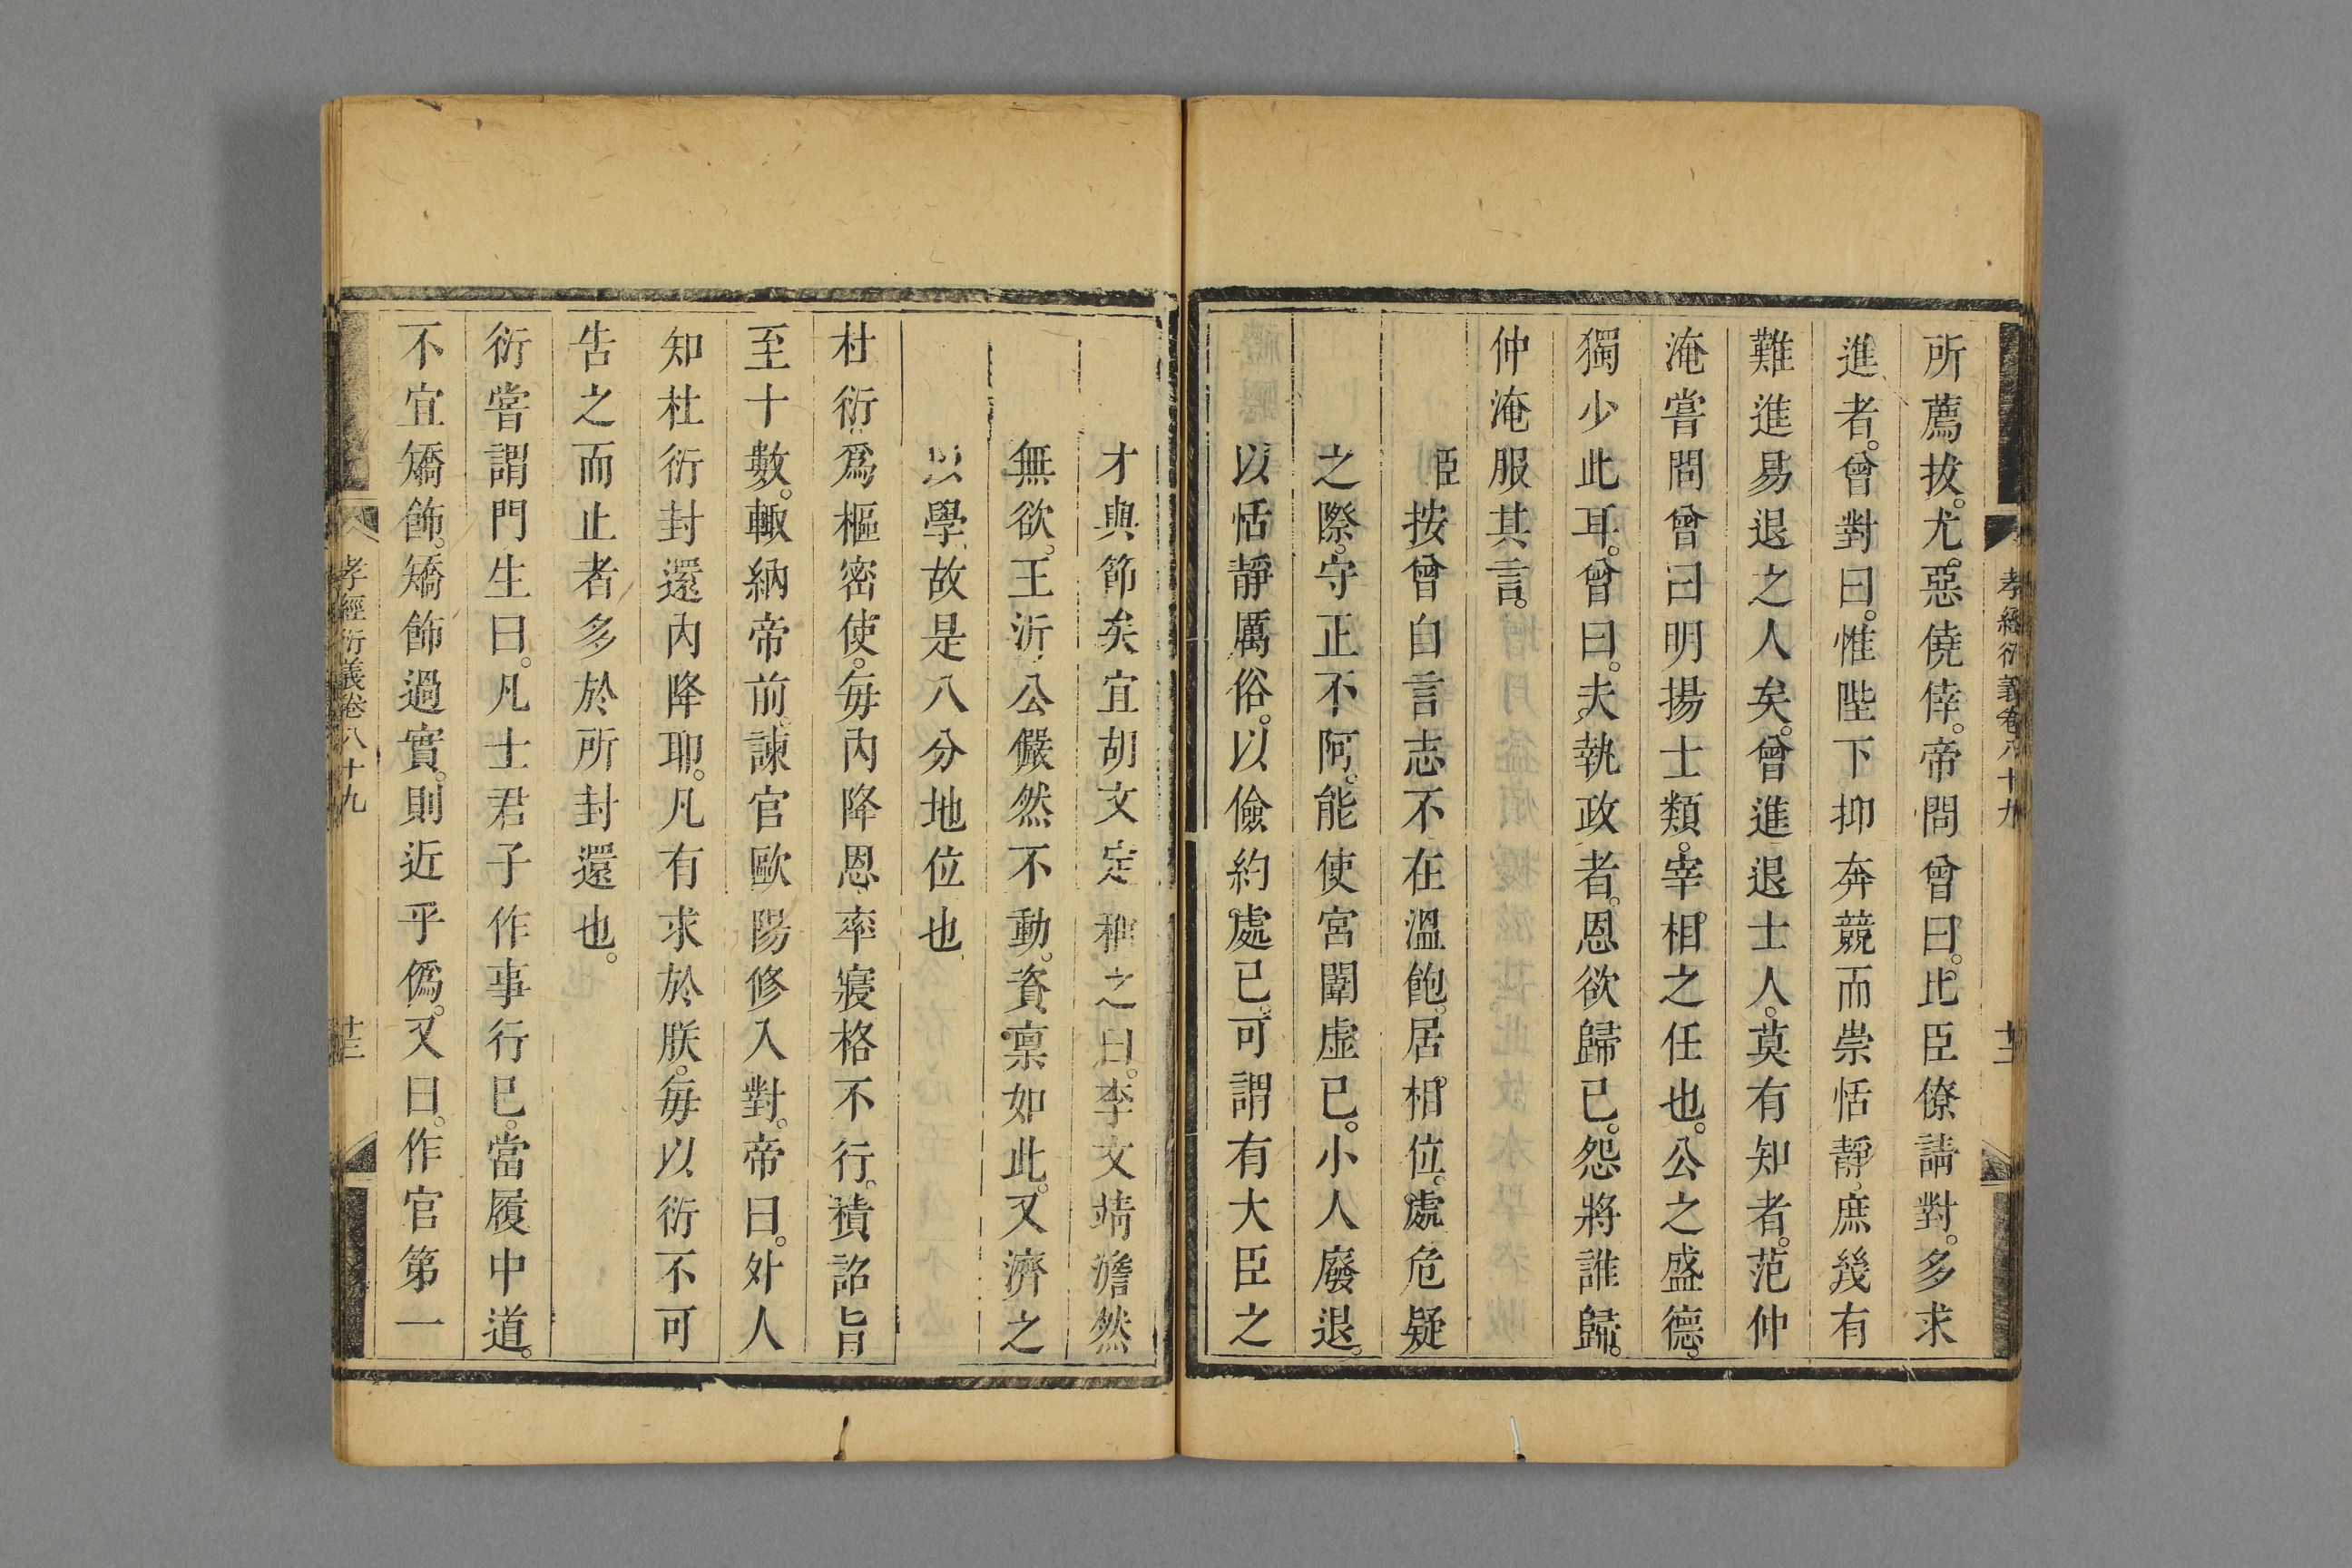 孝經衍義卷八十九
十二
所薦拔。尤惡僥倖。帝問曾曰。比臣僚請對。多求
進者。曾對曰。惟陛下抑奔競而崇恬靜。庶幾有
難進易退之人矣。曾進退士人。莫有知者。范仲
淹嘗問曾曰明揚士類。宰相之任也。公之盛德。
獨少此耳。曾曰。夫執政者。恩欲歸已。怨將誰歸。
仲淹服其言。
臣按曾自言志不在溫飽。居相位。處危疑
之際。守正不阿。能使宮闈虛已。小人廢退。
以恬靜厲俗。以儉約處已。可謂有大臣之
才與節矣宜胡文定稱之曰。李文靖澹然
無欲。王沂公儼然不動。資稟如此。又濟之
以學。故是八分地位也
杜衍爲樞密使。每內降恩率寢格不行。積詔旨
至十數。輙納帝前。諫官歐陽修入對。帝曰。外人
知杜衍封還內降耶。凡有求於朕。每以衍不可
告之而止者多於所封還也。
衍嘗謂門生曰。凡士君子作事行已。當履中道。
不宜矯飾。矯飾過實。則近乎僞。又曰。作官第一
孝經衍義卷八十九
十三